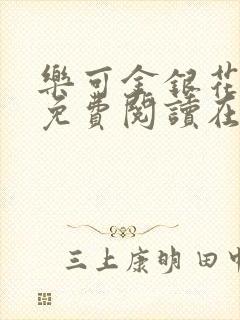 樂可金銀花
免費閱讀在
三上康明 田中